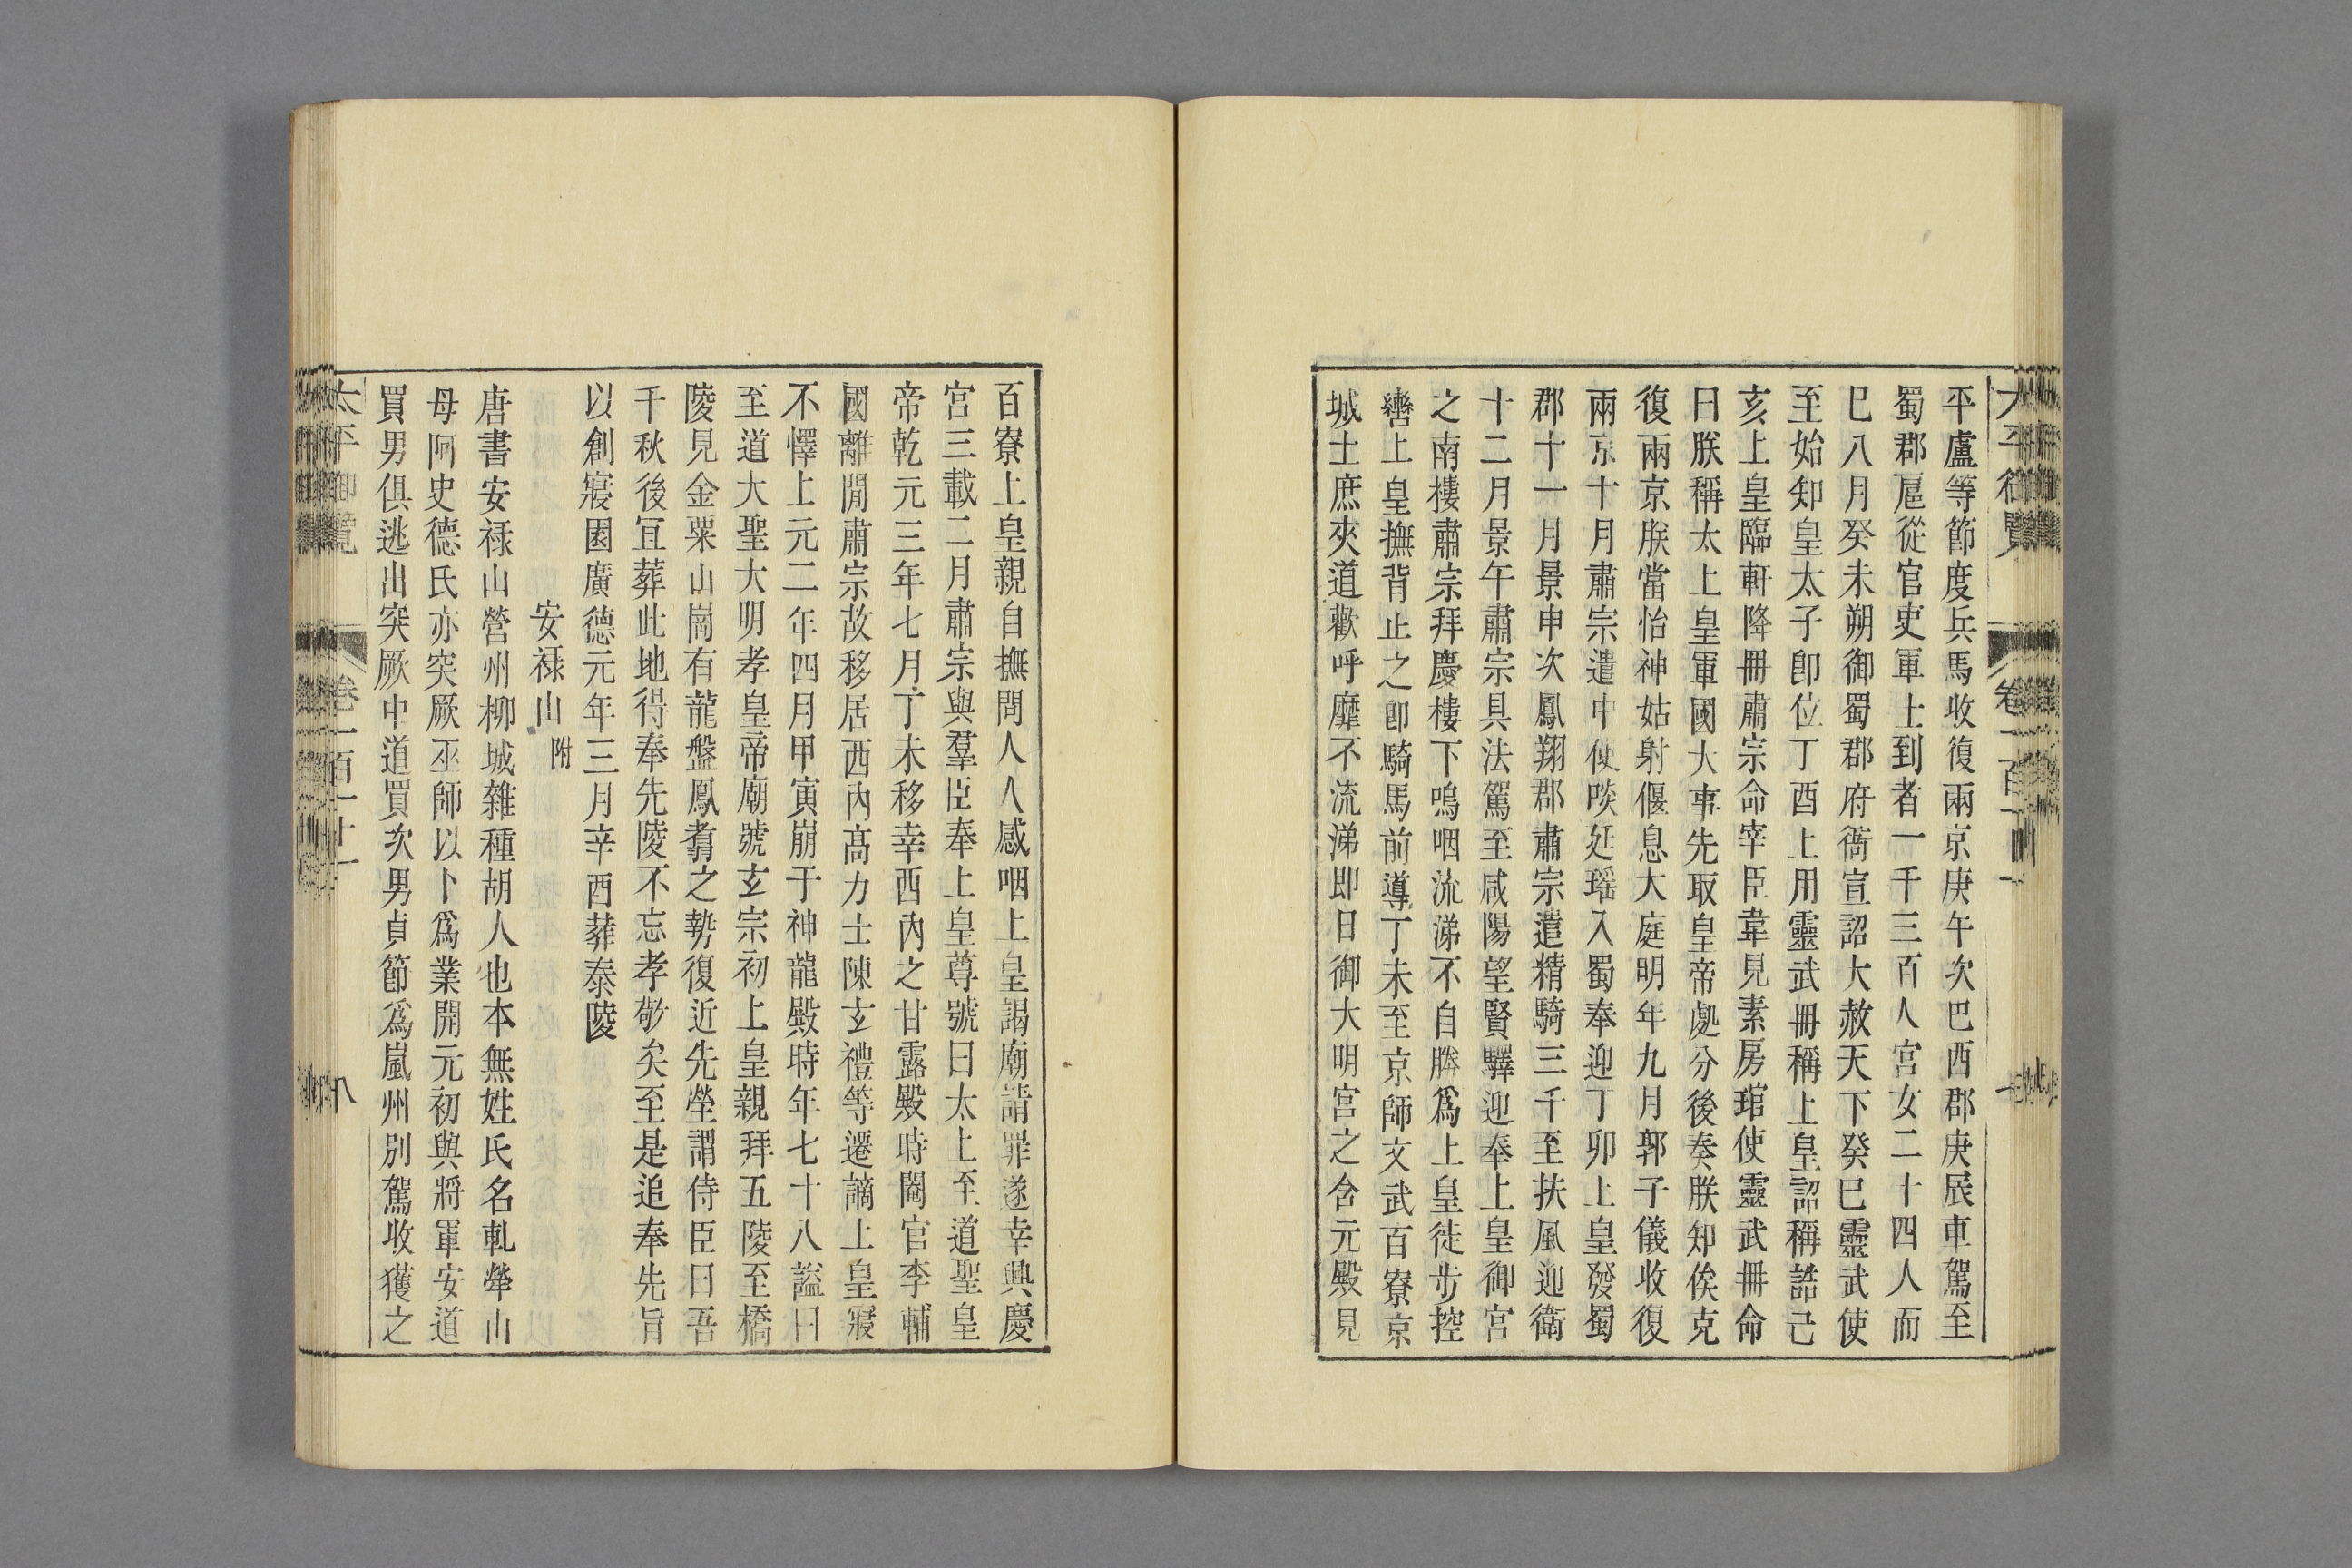 平盧等節度兵馬收復兩京庚午次巴西郡庚辰車駕至
蜀郡扈從官吏軍士到者一千三百人宮女二十四人而
巳八月癸未朔御蜀郡府衙宣詔大赦天下癸巳靈武使
至始知皇太子卽位丁酉上用靈武冊稱上皇詔稱誥己
亥上皇臨軒降冊肅宗命宰臣韋見素房琯使靈武冊命
曰朕稱太上皇軍國大事先取皇帝處分後奏朕知俟克
復兩京朕當怡神姑射偃息大庭明年九月郭子儀收復
兩京十月肅宗遣中使啖廷瑤入蜀奉迎丁卯上皇發蜀
郡十一月景申次鳳翔郡肅宗遣精騎三千至扶風迎衛
十二月景午肅宗具法駕至咸陽望賢驛迎奉上皇御宮
之南樓肅宗拜慶樓下嗚咽流涕不自勝爲上皇徒步控
轡上皇撫背止之卽騎馬前導丁未至京師文武百寮京
城士庶夾道歡呼靡不流涕即日御大明宮之含元殿見
百寮上皇親自撫問人人感咽上皇謁廟請罪遂幸興慶
宮三載二月肅宗與羣臣奉上皇尊號曰太上至道聖皇
帝乾元三年七月丁未移幸西內之甘露殿時閹官李輔
國離間肅宗故移居西內高力士陳玄禮等遷謫上皇寢
不懌上元二年四月甲寅崩于神龍殿時年七十八謚曰
至道大聖大明孝皇帝廟號玄宗初上皇親拜五陵至橋
陵見金粟山崗有龍盤鳳翥之勢復近先塋謂侍臣曰吾
千秋後宜葬此地得奉先陵不忘孝敬矣至是追奉先旨
以創寢園廣德元年三月辛酉葬泰陵
安祿山 附
唐書安祿山營州柳城雜種胡人也本無姓氏名軋犖山
母阿史德氏亦突厥巫師以卜爲業開元初與將軍安道
買男俱逃出突厥中道買次男貞節爲嵐州別駕收獲之
太平御覽 卷一百一十一 八